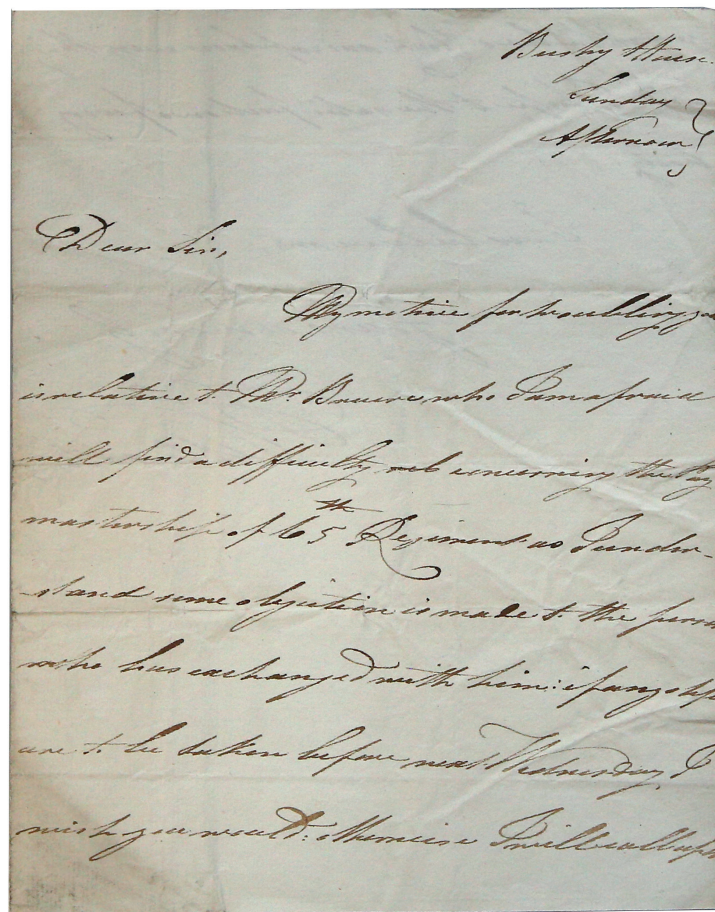 Bushy House.
Sunday
Afternoon
Dear Sir,
My motive for troubling you
is relative to Mr. Bruere who I am afraid
will find a difficulty concerning the Pay
mastership of 65th Regiment as I under-
-stand some objection is made to the person
who has exchanged with him: if any steps
are to be taken before next Wednesday, I
wish you would: otherwise I will call